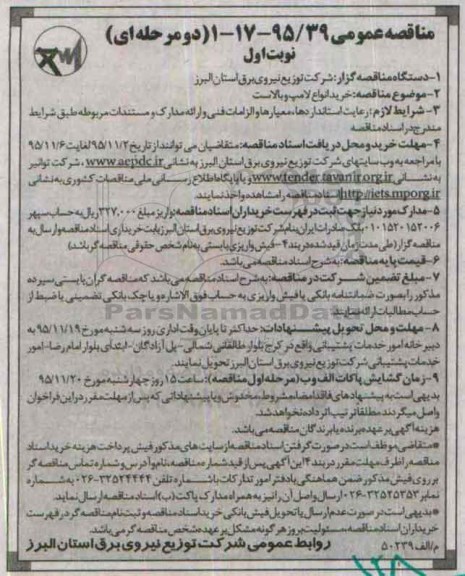 مناقصه عمومی ۹۵/۳۹-۱۷-۱ (دو مرحله ای)
نوبت اول
۱-دستگاه مناقصه گزار: شرکت توزیع نیروی برق استان البرز
۲-موضوع مناقصه: خرید انواع لامپ و بالاست
۳- شرایط لازم: رعایت استانداردها، معیارها و الزامات فنی و ارائه مدارک و مستندات مربوطه طبق شرایط
مندرج در اسناد مناقصه
۴- مهلت خرید و محل دریافت اسناد مناقصه: متقاضیان می توانند از تاریخ ۹۵/۱۱/۲ لغایت ۹۵/۱۱/۶
با مراجعه به وب سایتهای شرکت توزیع نیروی برق استان البرز به نشانی www.aepdc.ir، شرکت توانیر
به نشانی www.tender.tavanir.org.ir و یا پایگاه اطلاع رسانی ملی مناقصات کشوری به نشانی
http://iets.mporg.ir اسناد مناقصه را مشاهده و اخذ نمایند.
۵- مدارک مورد نیاز جهت ثبت در فهرست خریداران اسناد مناقصه: واریز مبلغ ۳۲۷,۰۰۰ ریال به حساب سپهر
۰۱۰۱۵۲۰۱۵۲۰۰۶ بانک صادرات ایران بنام شرکت توزیع نیروی برق استان البرز بابت خریداری اسناد مناقصه و ارسال به
مناقصه گزار (طی مدت زمان قید شده در بند ۴ -فیش واریزی بایستی به نام شخص حقوقی مناقصه گر باشد)
۶- قیمت پایه مناقصه: به شرح اسناد مناقصه می باشد.
۷- مبلغ تضمین شرکت در مناقصه: به شرح اسناد مناقصه می باشد که مناقصه گران بایستی سپرده
مذکور را بصورت ضمانتنامه بانکی یا فیش واریزی به حساب فوق الاشاره و یا چک بانکی تضمینی یا ضبط از
حساب مطالبات ارائه نمایند.
۸- مهلت و محل تحویل پیشنهادات: حداکثر تا پایان وقت اداری روز سه شنبه مورخ ۹۵/۱۱/۱۹ به
دبیرخانه امور خدمات پشتیبانی واقع در کرج بلوار طالقانی شمالی- پل آزادگان- ابتدای بلوار امام رضا- امور
خدمات پشتیبانی شرکت توزیع نیروی برق استان البرز تحویل نمایند.
۹- زمان گشایش پاکات الف و ب (مرحله اول مناقصه): ساعت ۱۵ روز چهارشنبه مورخ ۹۵/۱۱/۲۰
بدیهی است به پیشنهادهای فاقد امضا، مشروط، مخدوش و یا پیشنهاداتی که پس از مهلت مقرر در این فراخوان
واصل می گردند مطلقا ترتیب اثر داده نخواهد شد.
هزینه آگهی بر عهده برنده یا برندگان مناقصه می باشد.
*متقاضی موظف است در صورت گرفتن اسناد مناقصه از سایت های مذکور فیش پرداخت هزینه خرید اسناد
مناقصه را ظرف مهلت مقرر در بند ۴ این آگهی پس از قید شماره مناقصه، نام و آدرس و شماره تماس مناقصه گر
بر روی فیش مذکور ضمن هماهنگی با دفتر امور تدارکات با شماره تلفن ۳۲۵۲۴۴۴۴-۰۲۶ به شماره
نمابر ۳۲۵۲۵۳۵۳-۰۲۶ ارسال و اصل آن را نیز به همراه مدارک پاکت (ب) اسناد مناقصه ارسال نماید.
*بدیهی است در صورت عدم ارسال یا تحویل فیش بانکی خرید اسناد مناقصه و ثبت نام مناقصه گر در فهرست
خریداران اسناد مناقصه، مسئولیت بروز هر گونه مشکل بر عهده شخص مناقصه گر می باشد.
م/الف ۵۰۲۳۹ روابط عمومی شرکت توزیع نیروی برق استان البرز
ParsNamadData